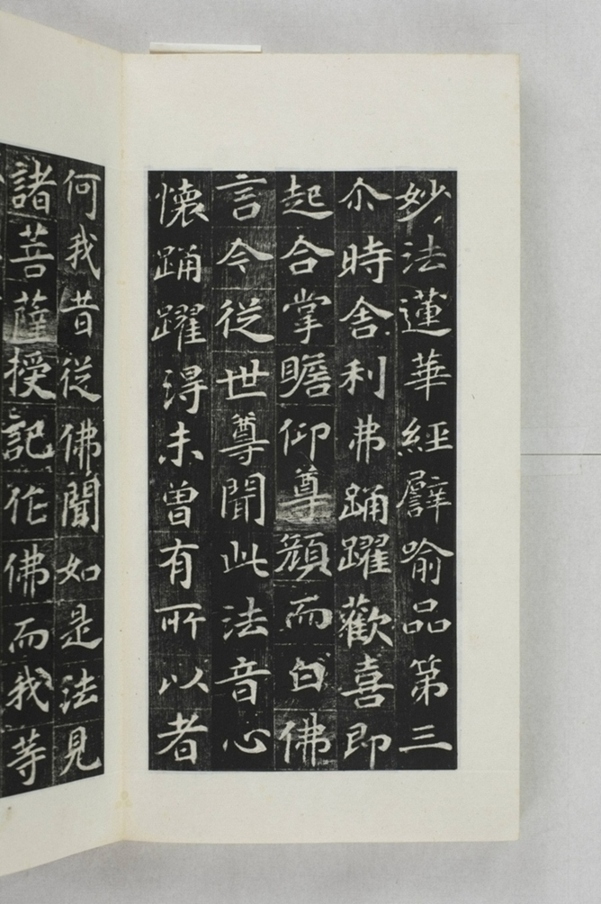 妙法蓮華經譬喻品第三
尒時舍利弗踊躍歡喜即
起合掌瞻仰尊顏而白佛
言今從世尊聞此法音心
懷踊躍得未曾有所以者
何我昔從佛聞如是法見
諸菩薩授記作佛而我等